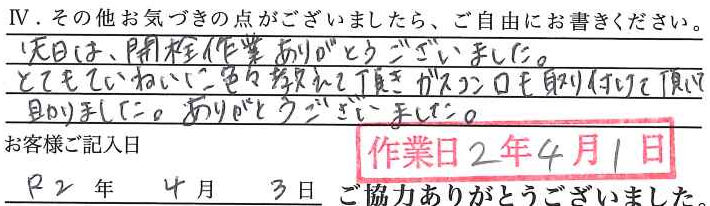 Ⅳ．その他お気づきの点がございましたら、ご自由にお書きください。
先日は、開栓作業ありがとうございました。
とてもていねいに色々教えて頂きガスコンロも取り付けて頂いて
助かりました。ありがとうございました。
お客様ご記入日
作業日2年4月1日
R2年 4月 3日 ご協力ありがとうございました。